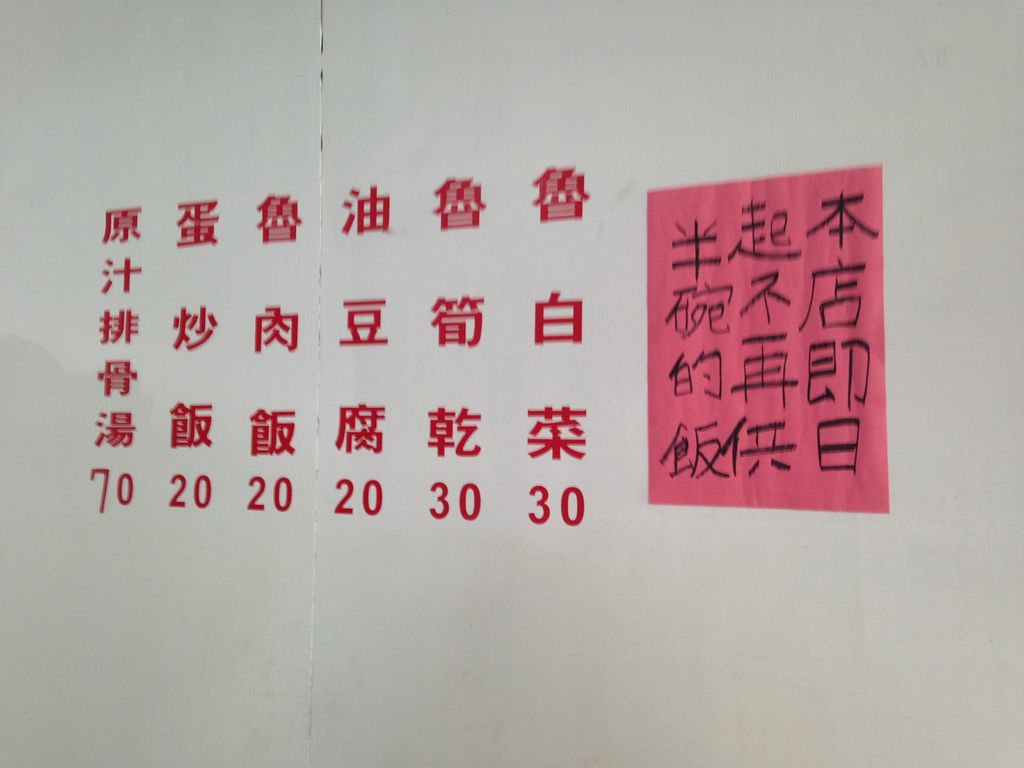 本店即日
起不再供
半碗的飯
魯白菜30
魯筍乾30
油豆腐20
魯肉飯20
蛋炒飯20
原汁排骨湯70